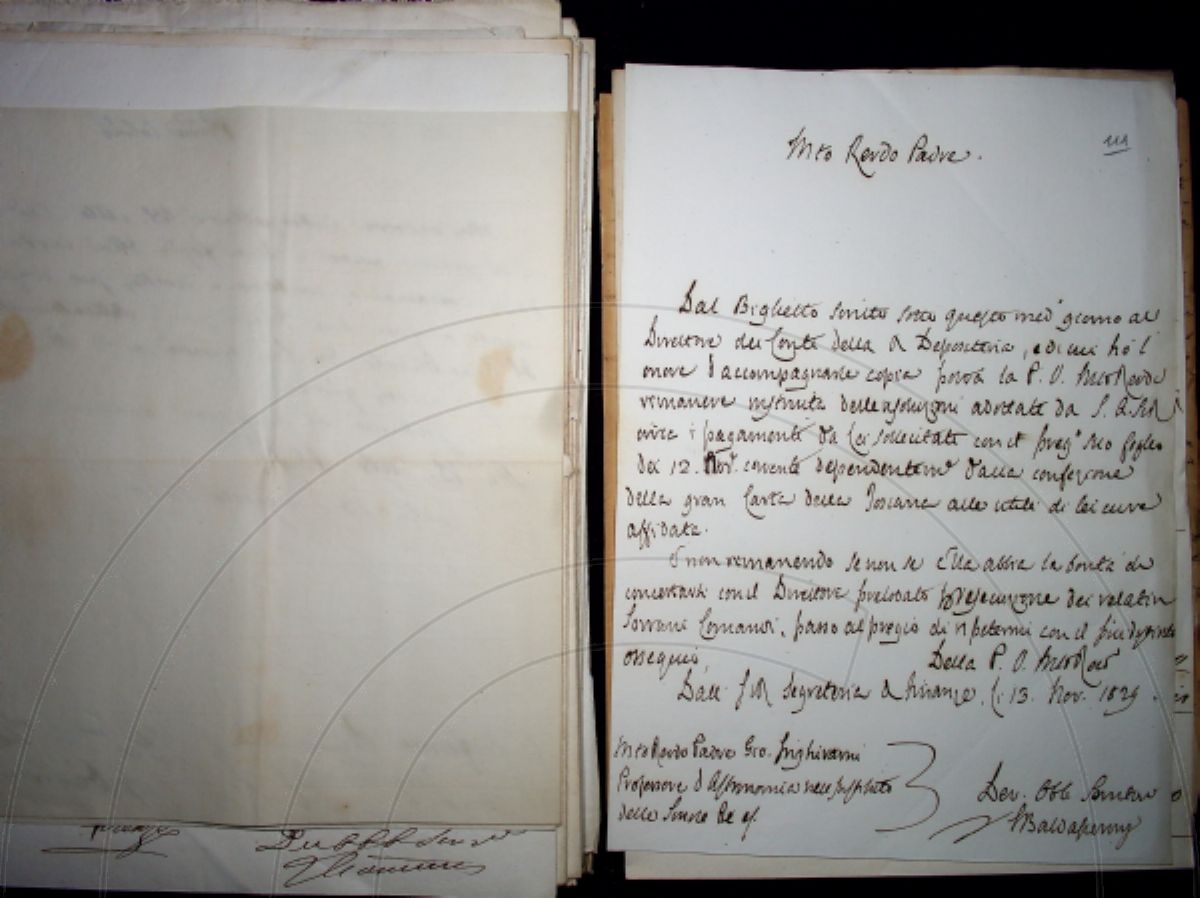 Mto Revdo Padre.
111
Dal Biglietto scritto sotto questo medo giorno al
Direttore dei Conti della R Depositeria, e di cui hò l'
onore d'accompagnarle copia potrà la P. V. Mto Revda
rimanere istruita delle risoluzioni adottate da S. A. I. R
circa i pagamenti da Lei sollecitati con il preg° suo foglio
dei 12. Nov. corrente dependentemte dalla confezione
della gran Carta della Toscana alle utili di lei cure
affidata.
E non rimanendo se non se Ella abbia la bontà di
concertarsi con il Direttore prelodato l'esecuzione dei relativi
Sovrani Comandi, passo al pregio di ripetermi con il più distinto
ossequio,
Della P. V. Mto Rev
Dall' I e R Segreteria di Finanze, li 13. Nov. 1829.
Mto Revdo Padre Gio. Inghirami
Professore d'Astronomia nell'Istituto
delle Scuole Pie
Dev. Obb Servitore
Dev Obb Serv